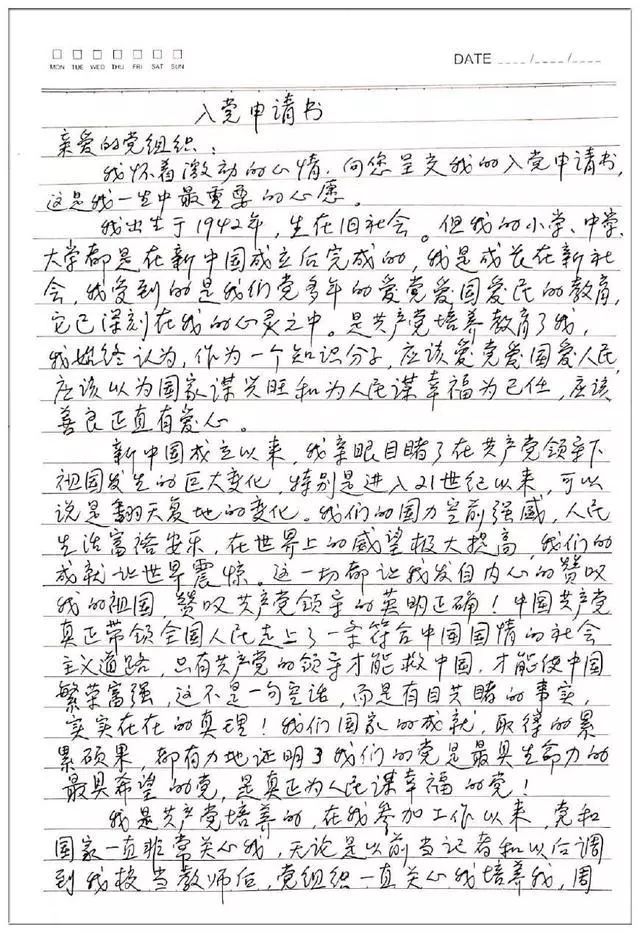 MON TUE WED THU FRI SAT SUN
DATE ____/____/____
入党申请书
亲爱的党组织：
我怀着激动的心情，向您呈交我的入党申请书，
这是我一生中最重要的心愿。
我出生于1942年，生在旧社会。但我的小学、中学、
大学都是在新中国成立后完成的，我是成长在新社
会，我受到的是我们党多年的爱党爱国爱民的教育，
它已深刻在我的心灵之中。是共产党培养教育了我，
我始终认为，作为一个知识分子，应该爱党爱国爱人民，
应该以为国家谋兴旺和为人民谋幸福为己任，应该
善良正直有爱心。
新中国成立以来，我亲眼目睹了在共产党领导下
祖国发生的巨大变化，特别是进入21世纪以来，可以
说是翻天复地的变化。我们的国力空前强盛，人民
生活富裕安乐，在世界上的威望极大提高，我们的
成就让世界震惊。这一切都让我发自内心的赞叹
我的祖国，赞叹共产党领导的英明正确！中国共产党
真正带领全国人民走上了一条符合中国国情的社会
主义道路，只有共产党的领导才能救中国，才能使中国
繁荣富强，这不是一句空话，而是有目共睹的事实，
实实在在的真理！我们国家的成就，取得的累
累硕果，都有力地证明了我们的党是最具生命力的
最具希望的党，是真正为人民谋幸福的党！
我是共产党培养的，在我参加工作以来，党和
国家一直非常关心我，无论是以前当记者和以后调
到我校当教师后，党组织一直关心我培养我，周